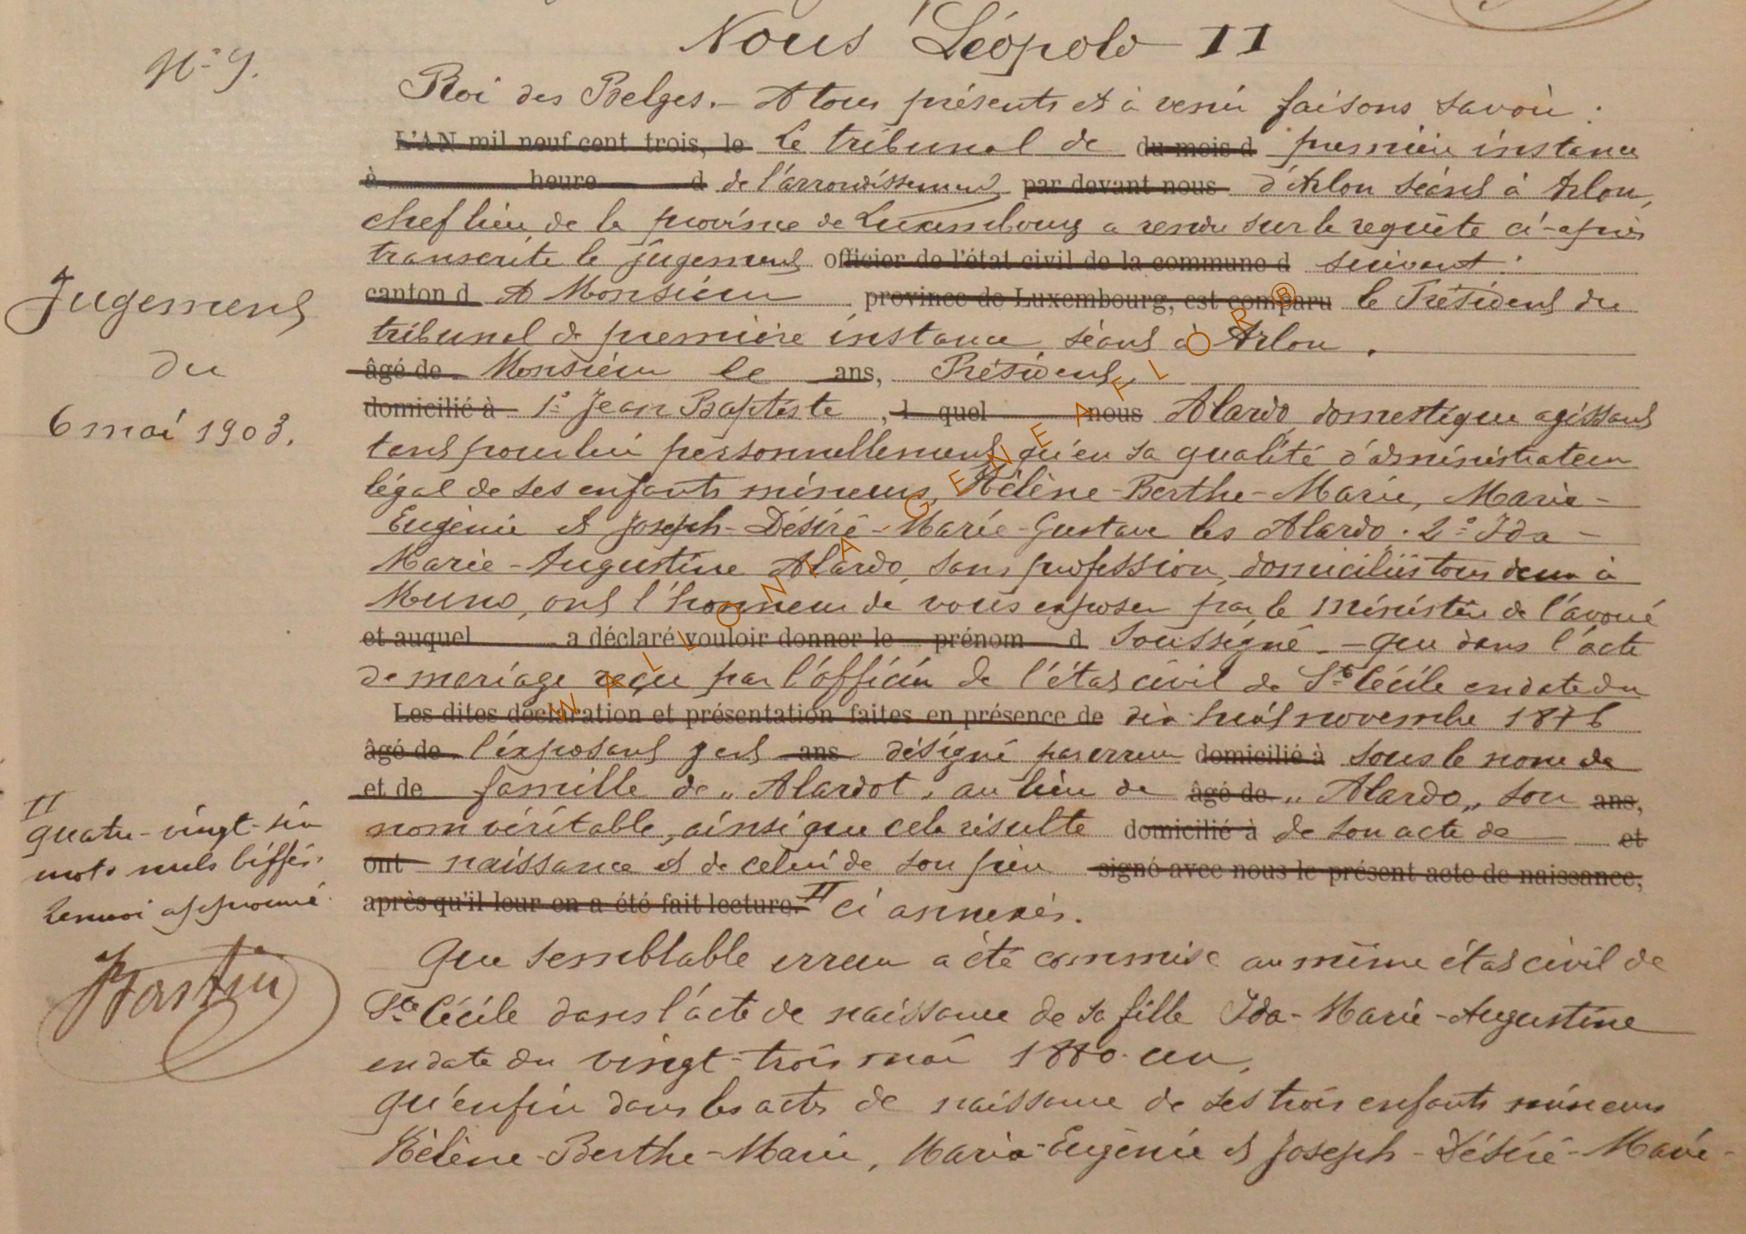 Nous Léopold II
N° 9.
Roi des Belges. – A tous présents et à venir faisons savoir :
L'AN mil neuf cent trois, le Le tribunal de du mois d première instance
à heure d de l'arrondissement par devant nous d'Arlon séant à Arlon,
chef lieu de la province de Luxembourg a rendu sur la requête ci-après
transcrite le jugement officier de l'état civil de la commune d suivant :
canton d A Monsieur province de Luxembourg, est comparu le Président du
tribunal de première instance séant à Arlon.
âgé de Monsieur le ans, Président,
domicilié à 1° Jean Baptiste , l quel nous Alardo, domestique agissant
tant pour lui personnellement qu'en sa qualité d'administrateur
légal de ses enfants mineurs, Hélène-Berthe-Marie, Marie-
Eugénie et Joseph-Désiré-Marie-Gustave les Alardo. 2° Ida-
Marie-Augustine Alardo, sans profession, domiciliés tous deux à
Muno, ont l'honneur de vous exposer par le ministère de l'avoué
et auquel a déclaré vouloir donner le prénom d soussigné. – que dans l'acte
de mariage reçu par l'officier de l'état civil de Ste Cécile en date du
Les dites déclaration et présentation faites en présence de dix-huit novembre 1876
âgé de l'exposant y est ans désigné par erreur domicilié à sous le nom de
et de famille de „Alardot, au lieu de âgé de „Alardo„ son ans,
nom véritable, ainsi que cela résulte domicilié à de son acte de et
ont naissance et de celui de son père signé avec nous le présent acte de naissance,
après qu'il leur en a été fait lecture. II ci annexés.
Que semblable erreur a été commise au même état civil de
Ste Cécile dans l'acte de naissance de sa fille Ida-Marie-Augustine
en date du vingt-trois mai 1880.
qu'enfin dans les actes de naissance de ses trois enfants mineurs
Hélène-Berthe-Marie, Marie-Eugénie et Joseph-Désiré-Marie-
Jugement
du
6 mai 1903.
II
quatre-vingt-six
mots nuls biffés.
Renvoi approuvé.
Hostin
WALLONIA GENEAFELOR ®